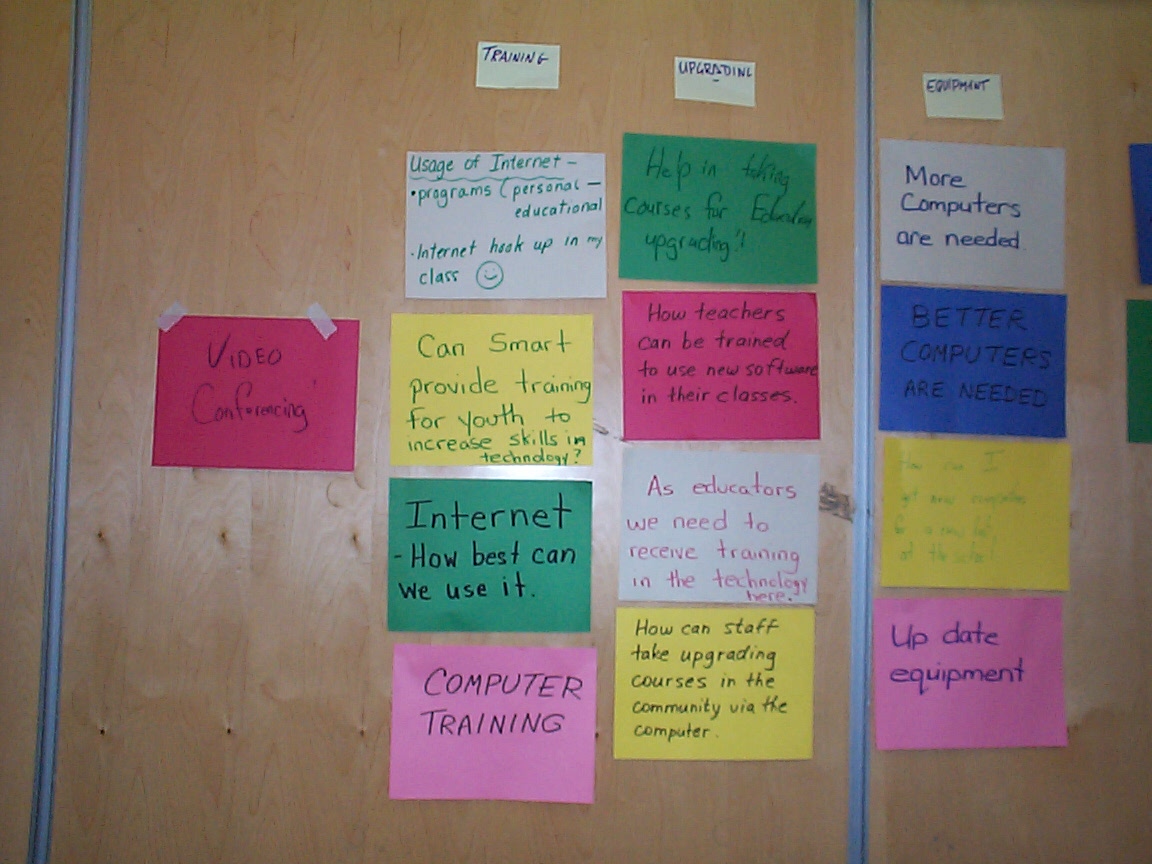 TRAINING
UPGRADING
EQUIPMENT
VIDEO
Conferencing
Usage of Internet -
• programs (personal -
educational
• Internet hook up in my
class
Can Smart
provide training
for youth to
increase skills in
technology?
Internet
- How best can
we use it.
COMPUTER
TRAINING
Help in taking
courses for Education
upgrading!!
How teachers
can be trained
to use new software
in their classes.
As educators
we need to
receive training
in the technology
here.
How can staff
take upgrading
courses in the
community via the
computer.
More
Computers
are needed
BETTER
COMPUTERS
ARE NEEDED
How can I
get new computers
a new
at the
Up date
equipment